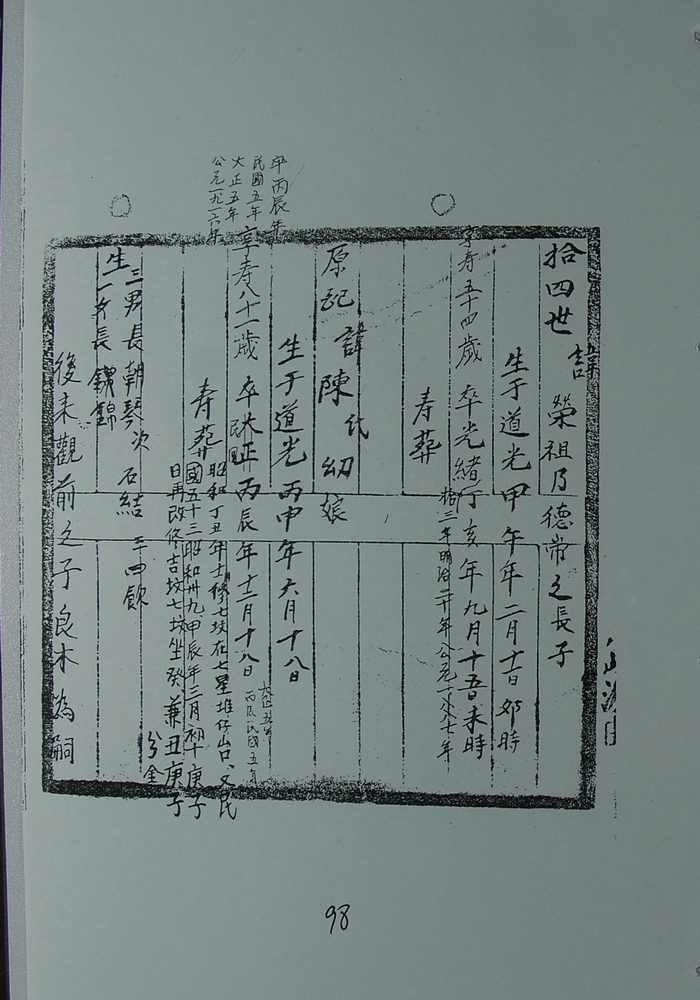 拾四世 諱 榮祖乃德常之長子
生于道光甲午年二月十一日卯時
享寿五十四歲 卒光緒丁亥年九月十五日未時
拾三年明治二十年公元一八八七年
寿葬
原配 諱陳氏幼娘
生于道光丙申年六月十八日
卒丙辰年
民國五年
大正五年
公元一九一六年
享寿八十一歲 卒大正丙辰年十二月十八日
民國
大正五年
丙辰民國五年
寿葬
昭和丁丑年十二月修七坟在七星堆仔山口、又民
國五十三昭和卅九甲辰年三月初十庚子
日再改修吉坟七坟坐癸兼丑庚子
分金
生 三男長朝琴次石結 三四欽
一女長
後未觀前之子良木為嗣
98